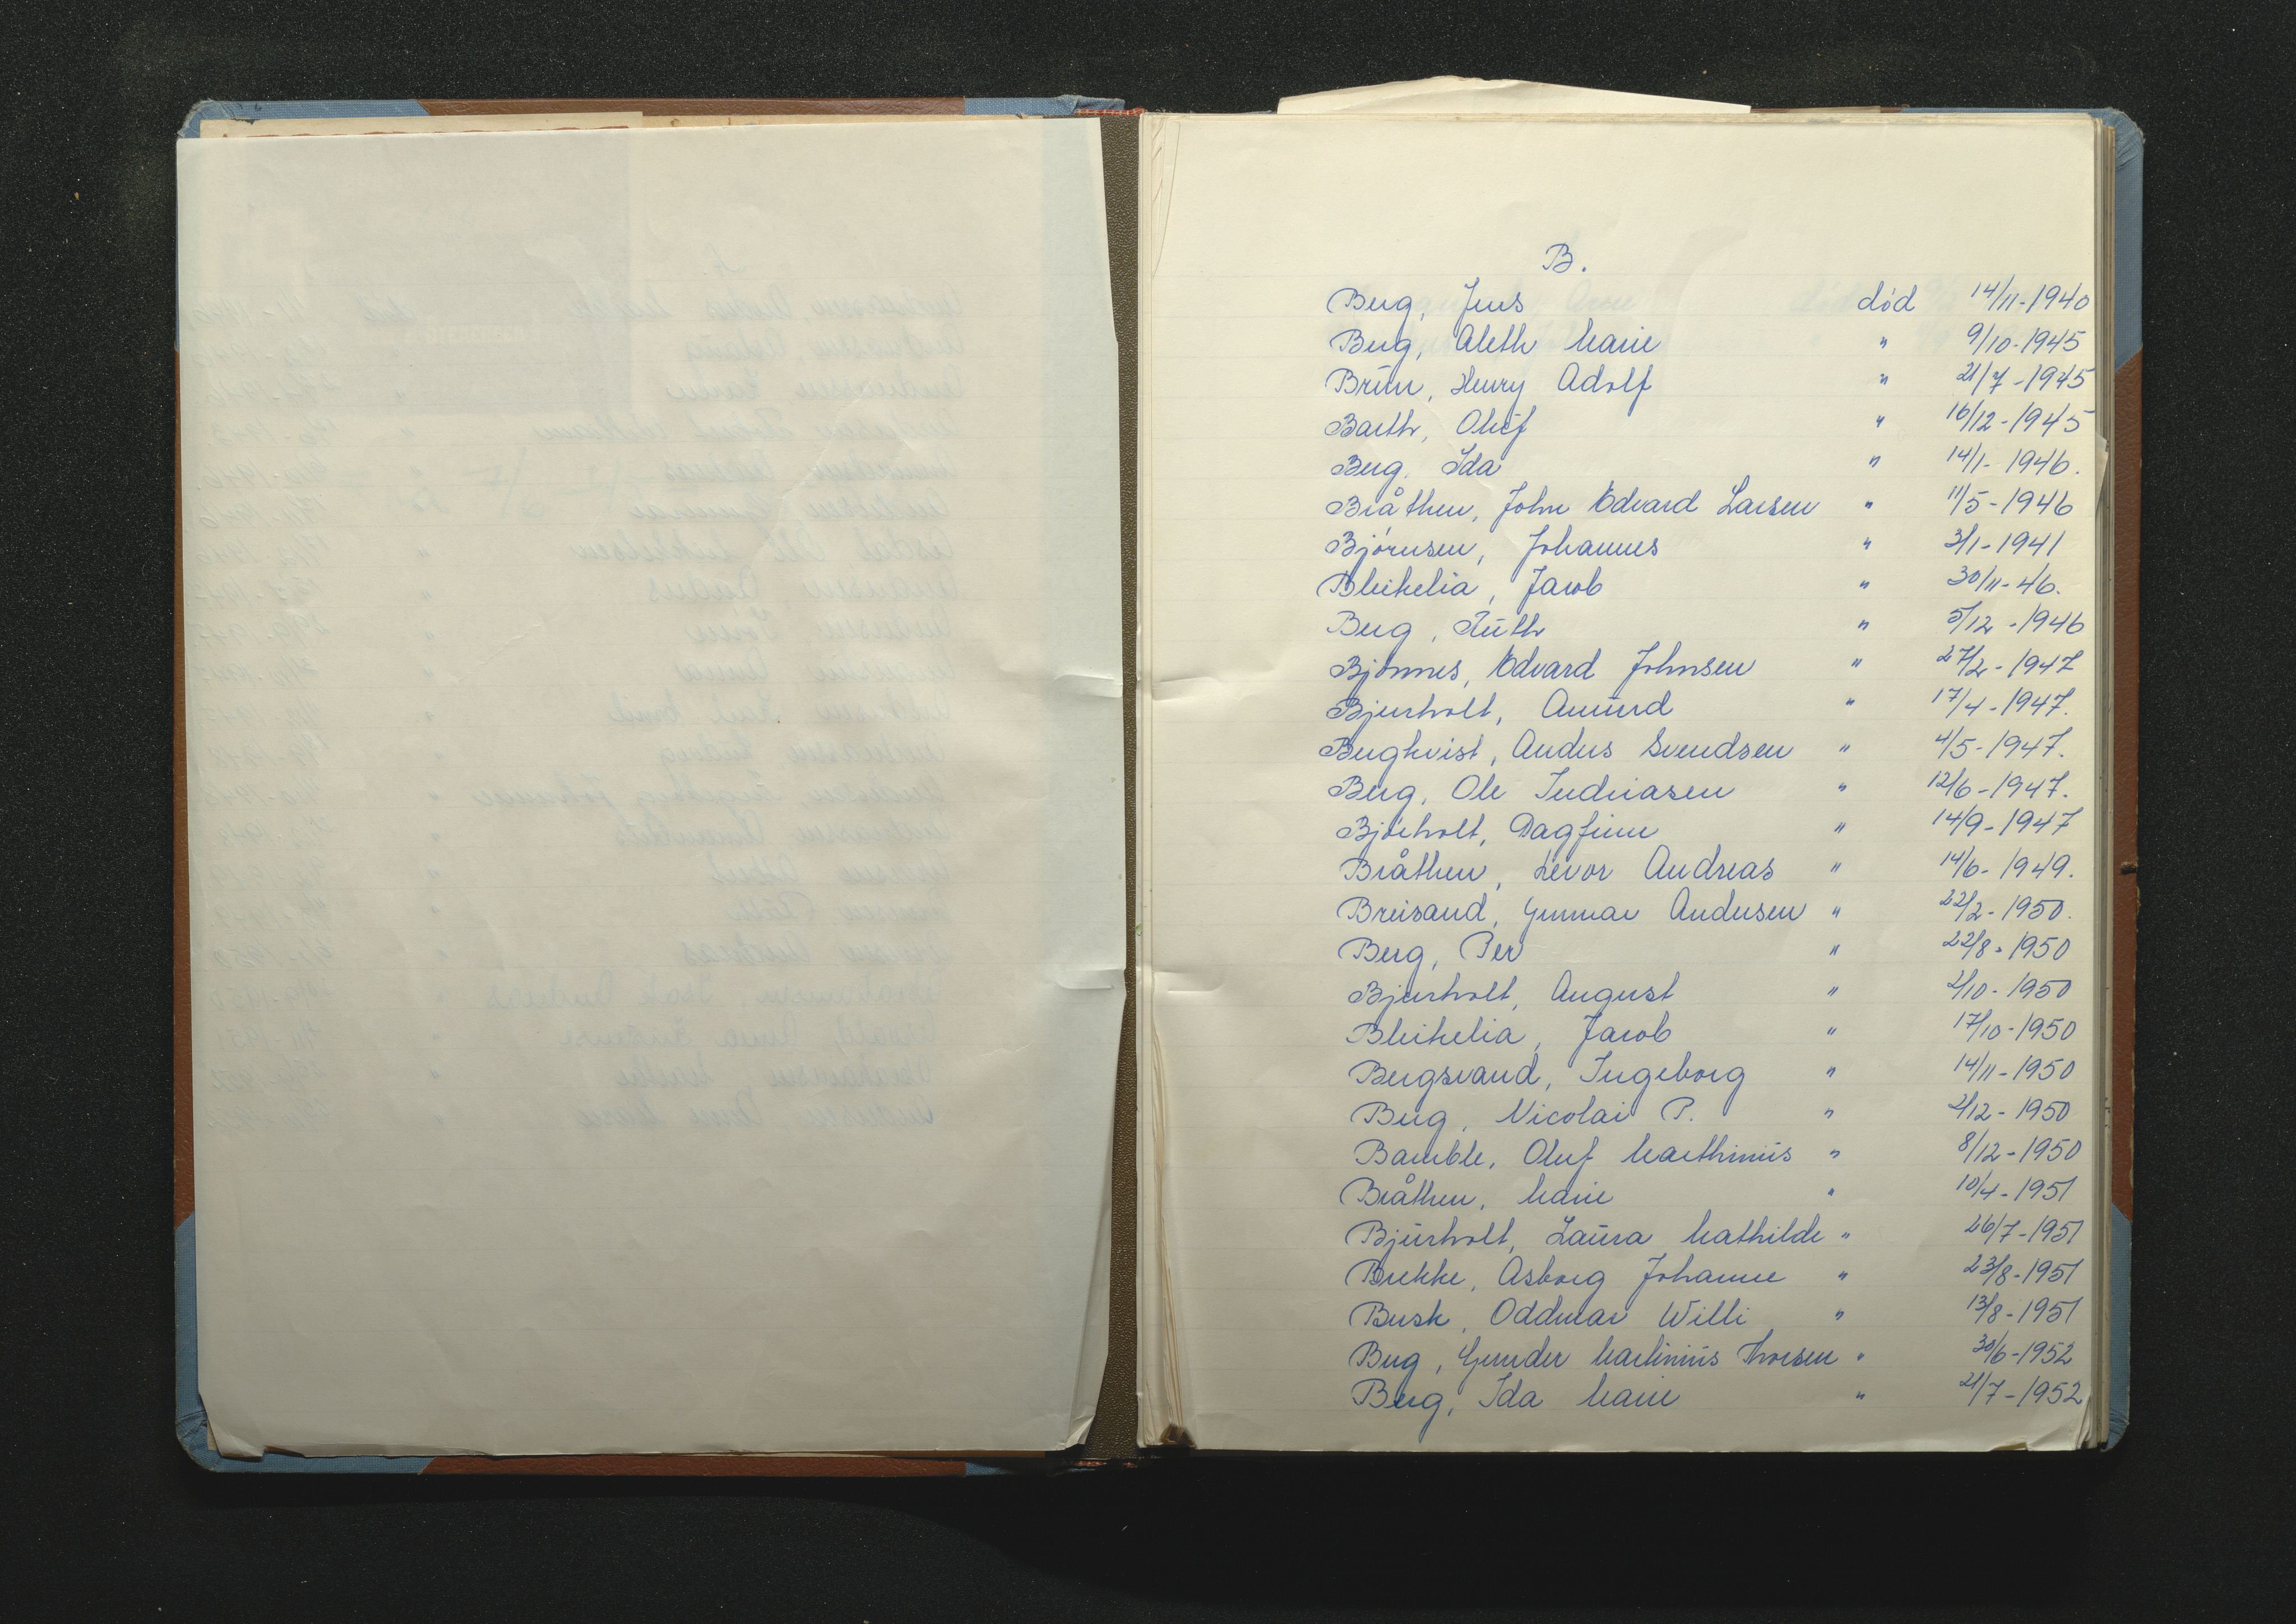 B.
Berg, Jens død 14/11-1940
Berg, Aleth Marie " 9/10-1945
Brun, Henry Adolf " 21/7-1945
Barth, Oluf " 16/12-1945
Berg, Ida " 14/1-1946.
Bråthen, John Edvard Larsen " 11/5-1946
Bjørnsen, Johannes " 3/1-1941
Bleikelia, Jacob " 30/11-46.
Berg, Ruth " 5/12-1946
Bjønnes, Edvard Johnsen " 27/2-1947
Bjerholt, Amund " 17/4-1947.
Bergkvist, Anders Svendsen " 4/5-1947.
Berg, Ole Indriasen " 12/6-1947.
Bjórholt, Dagfinn " 14/9-1947
Bråthen, Levor Andreas " 14/6-1949.
Breisand, Gunnar Andersen " 22/2-1950.
Berg, Per " 22/8-1950
Bjurholt, August " 2/10-1950
Bleikelia, Jacob " 17/10-1950
Bergsvand, Ingeborg " 14/11-1950
Berg, Nicolai P. " 2/12-1950
Bamble, Oluf Marthinius " 8/12-1950
Bråthen, Marie " 10/4-1951
Bjurholt, Laura Mathilde " 26/7-1951
Brekke, Asborg Johanne " 23/8-1951
Busk, Oddmar Willi " 13/8-1951
Berg, Gunder Martinius Thorsen " 30/6-1952
Berg, Ida Marie " 21/7-1952